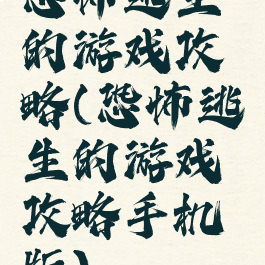 恐怖逃生
的游戏攻
略(恐怖逃
生的游戏
攻略手机
版)